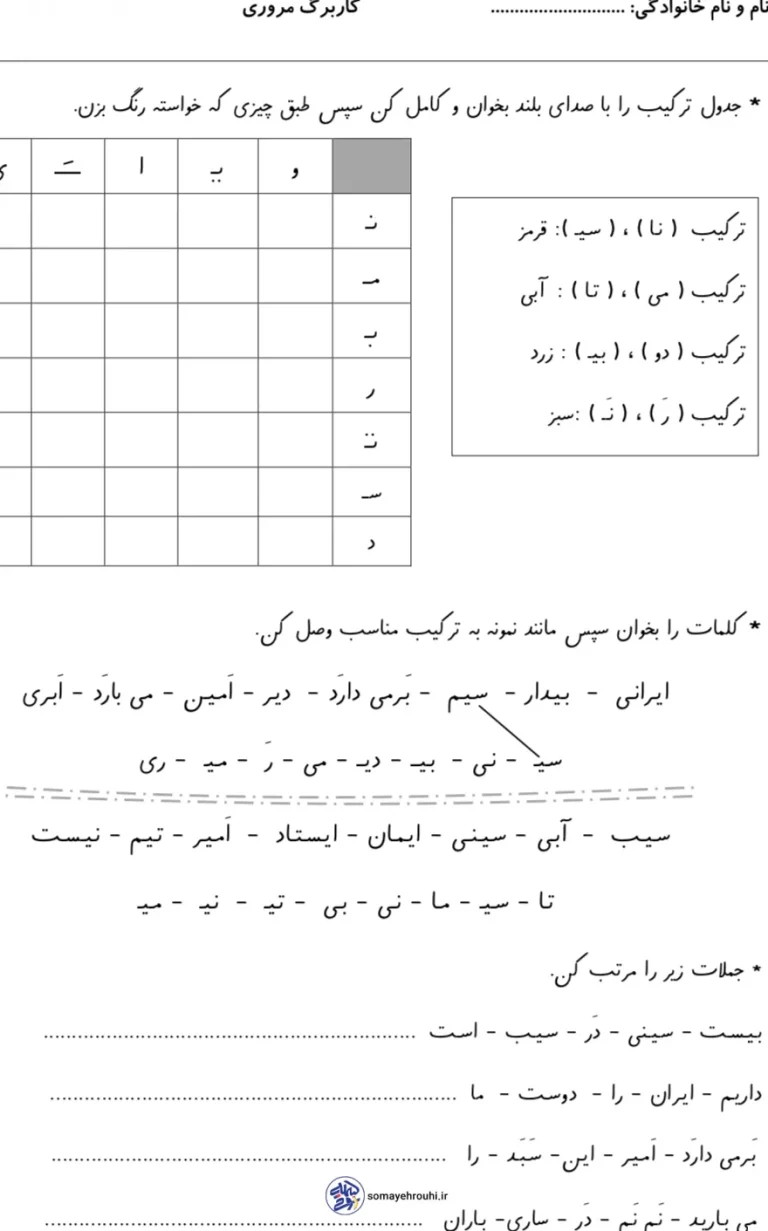 نام و نام خانوادگی: ............................ کاربرگ مروری
* جدول ترکیب را با صدای بلند بخوان و کامل کن سپس طبق چیزی که خواسته رنگ بزن.
و یـ ا ـَـ ی
نـ
مـ
بـ
ر
تـ
سـ
د
ترکیب ( نا ) ، ( سیـ ): قرمز
ترکیب ( می ) ، ( تا ) : آبی
ترکیب ( دو ) ، ( بیـ ) : زرد
ترکیب ( رَ ) ، ( نَـ ) :سبز
* کلمات را بخوان سپس مانند نمونه به ترکیب مناسب وصل کن.
ایرانی - بیدار - سیم - بَرمی دارَد - دیر - اَمین - می بارَد - اَبری
سیـ - نی - بیـ - دیـ - می - رَ - میـ - ری
سیب - آبی - سینی - ایمان - ایستاد - اَمیر - تیم - نیست
تا - سیـ - ما - نی - بی - تیـ - نیـ - میـ
* جملات زیر را مرتب کن.
بیست - سینی - دَر - سیب - است ................................................................
داریم - ایران - را - دوست - ما ......................................................................
بَرمی دارَد - اَمیر - این- سَبَد - را ....................................................................
می بارید - نَم نَم - دَر - ساری- باران .................................................................
somayehrouhi.ir